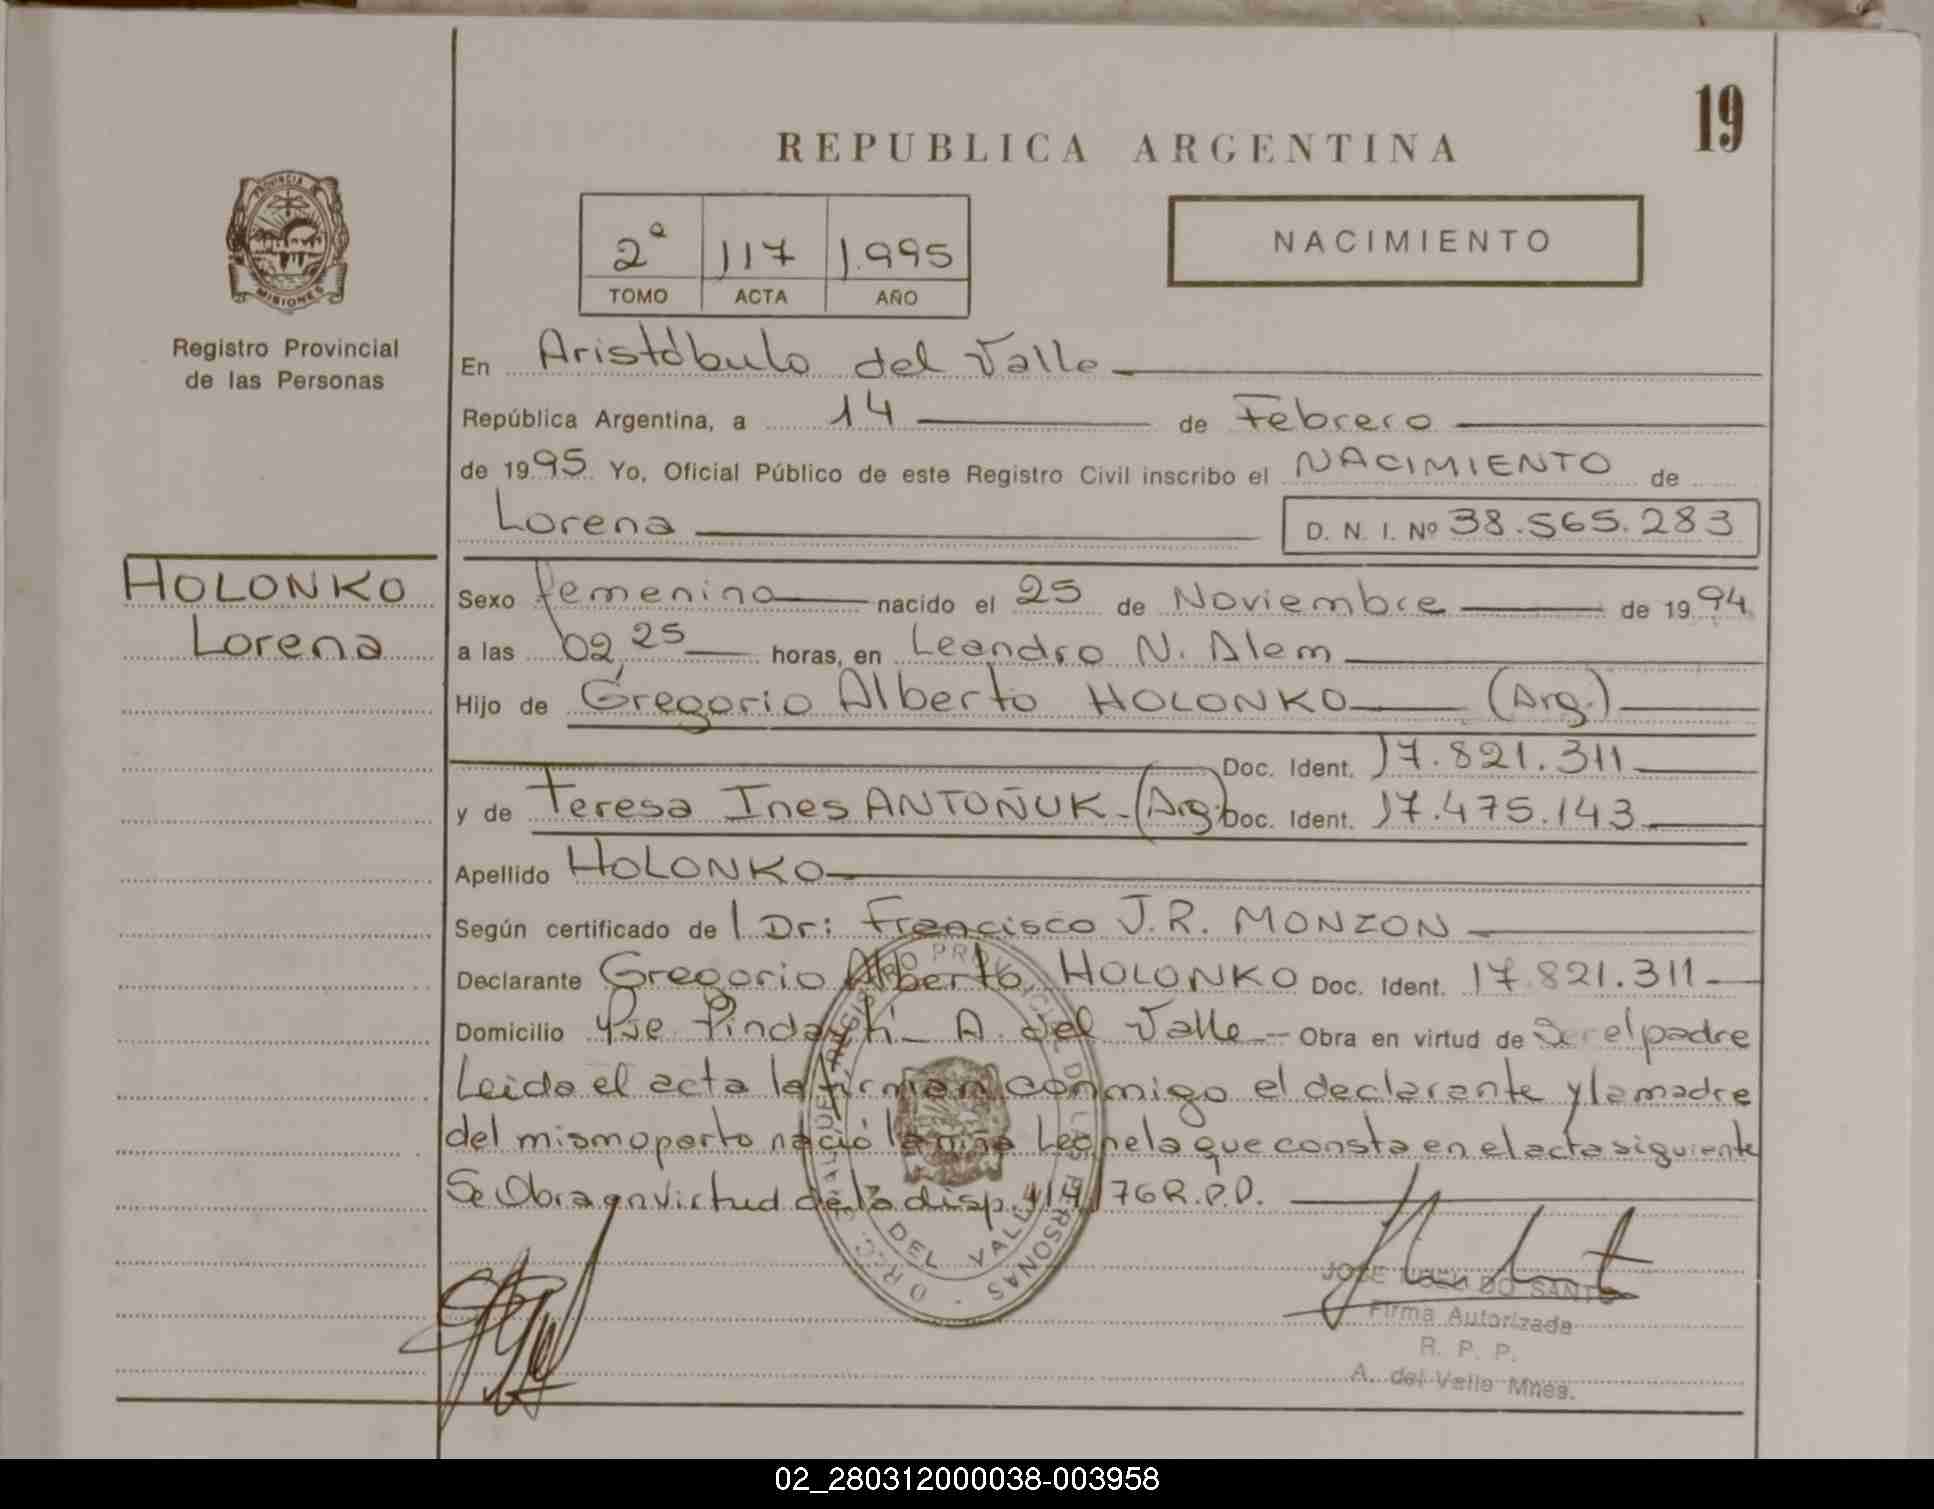 19
REPUBLICA ARGENTINA
PROVINCIA DE
MISIONES
2ª 117 1.995
TOMO ACTA AÑO
NACIMIENTO
Registro Provincial
de las Personas
En Aristóbulo del Valle
República Argentina, a 14 de Febrero
de 1995. Yo, Oficial Público de este Registro Civil inscribo el NACIMIENTO de
Lorena D. N. I. Nº 38.565.283
HOLONKO
Lorena
Sexo femenino nacido el 25 de Noviembre de 1994
a las 02,25 horas, en Leandro N. Alem
Hijo de Gregorio Alberto HOLONKO (Arg.)
Doc. Ident. 17.821.311
y de Teresa Ines ANTOÑUK - (Arg.) Doc. Ident. 17.475.143
Apellido HOLONKO
Según certificado de l Dr: Francisco J.R. MONZON
Declarante Gregorio Alberto HOLONKO Doc. Ident. 17.821.311
Domicilio Pje. Pindaytí - A. del Valle - Obra en virtud de Ser el padre
Leida el acta la firman conmigo el declarante y la madre
del mismo parto nació la niña Leonela que consta en el acta siguiente
Se Obra en virtud de la disp. 114/76 R.P.P.
DEL VALLE
JOSE DO SANTO
Firma Autorizada
R. P. P.
A. del Valle Mnes.
02_280312000038-003958